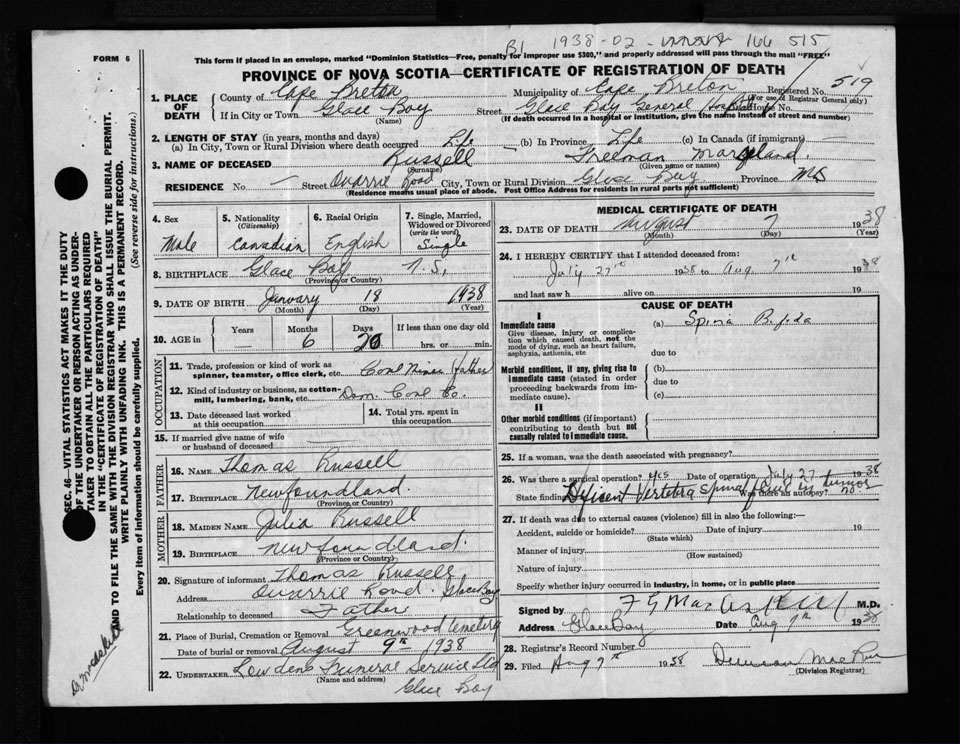 B1 1938-02- 166 515
FORM 6
This form if placed in an envelope, marked "Dominion Statistics—Free, penalty for improper use $300," and properly addressed will pass through the mail "FREE"
PROVINCE OF NOVA SCOTIA—CERTIFICATE OF REGISTRATION OF DEATH
519
1. PLACE OF DEATH
County of Cape Breton Municipality of Cape Breton Registered No.
(For use of Registrar General only)
If in City or Town Glace Bay Street Glace Bay General Hospital House No.
(Name) (If death occurred in a hospital or institution, give the name instead of street and number)
2. LENGTH OF STAY (in years, months and days)
(a) In City, Town or Rural Division where death occurred Life (b) In Province Life (c) In Canada (if immigrant)
3. NAME OF DECEASED Russell Freeman
(Surname) (Given name or names)
RESIDENCE No. — Street Quarrie Road City, Town or Rural Division Glace Bay Province NS
(Residence means usual place of abode. Post Office Address for residents in rural parts not sufficient)
4. Sex
Male
5. Nationality
(Citizenship)
Canadian
6. Racial Origin
English
7. Single, Married, Widowed or Divorced
(write the word)
Single
8. BIRTHPLACE Glace Bay N.S.
(Province or Country)
9. DATE OF BIRTH January 18 1938
(Month) (Day) (Year)
10. AGE in
Years Months Days If less than one day old
— 6 20 hrs. or min.
OCCUPATION
11. Trade, profession or kind of work as spinner, teamster, office clerk, etc. Coal Miner (father)
12. Kind of industry or business, as cotton-mill, lumbering, bank, etc. Dom. Coal Co.
13. Date deceased last worked at this occupation
14. Total yrs. spent in this occupation
15. If married give name of wife or husband of deceased
FATHER
16. NAME Thomas Russell
17. BIRTHPLACE Newfoundland.
(Province or Country)
MOTHER
18. MAIDEN NAME Julia Russell
19. BIRTHPLACE Newfoundland.
(Province or Country)
20. Signature of informant Thomas Russell
Address Quarrie Road. Glace Bay
Relationship to deceased Father
21. Place of Burial, Cremation or Removal Greenwood Cemetery
Date of burial or removal August 9th 1938
22. UNDERTAKER Lowdens Funeral Service Ltd
(Name and address)
Glace Bay
MEDICAL CERTIFICATE OF DEATH
23. DATE OF DEATH August 7 1938
(Month) (Day) (Year)
24. I HEREBY CERTIFY that I attended deceased from:
July 27th 1938 to Aug. 7th 1938
and last saw h alive on 19
CAUSE OF DEATH
I
Immediate cause (a) Spina Bifida
Give disease, injury or complication which caused death, not the mode of dying, such as heart failure, asphyxia, asthenia, etc
due to
Morbid conditions, if any, giving rise to immediate cause (stated in order proceeding backwards from immediate cause).
(b)
due to
(c)
II
Other morbid conditions (if important) contributing to death but not causally related to immediate cause.
25. If a woman, was the death associated with pregnancy?
26. Was there a surgical operation? yes Date of operation July 27 1938
State finding Vertebra Spina tumor Was there an autopsy? no
27. If death was due to external causes (violence) fill in also the following:—
Accident, suicide or homicide? Date of injury 19
(State which)
Manner of injury
(How sustained)
Nature of injury
Specify whether injury occurred in industry, in home, or in public place
Signed by M.D.
Address Glace Bay Date Aug 7th 1938
28. Registrar's Record Number
29. Filed Aug 7th 1938 Duncan
(Division Registrar)
SEC. 46—VITAL STATISTICS ACT MAKES IT THE DUTY OF THE UNDERTAKER OR PERSON ACTING AS UNDERTAKER TO OBTAIN ALL THE PARTICULARS REQUIRED IN THE "CERTIFICATE OF REGISTRATION OF DEATH" AND TO FILE THE SAME WITH THE DIVISION REGISTRAR WHO SHALL ISSUE THE BURIAL PERMIT.
WRITE PLAINLY WITH UNFADING INK. THIS IS A PERMANENT RECORD.
Every item of information should be carefully supplied. (See reverse side for instructions).